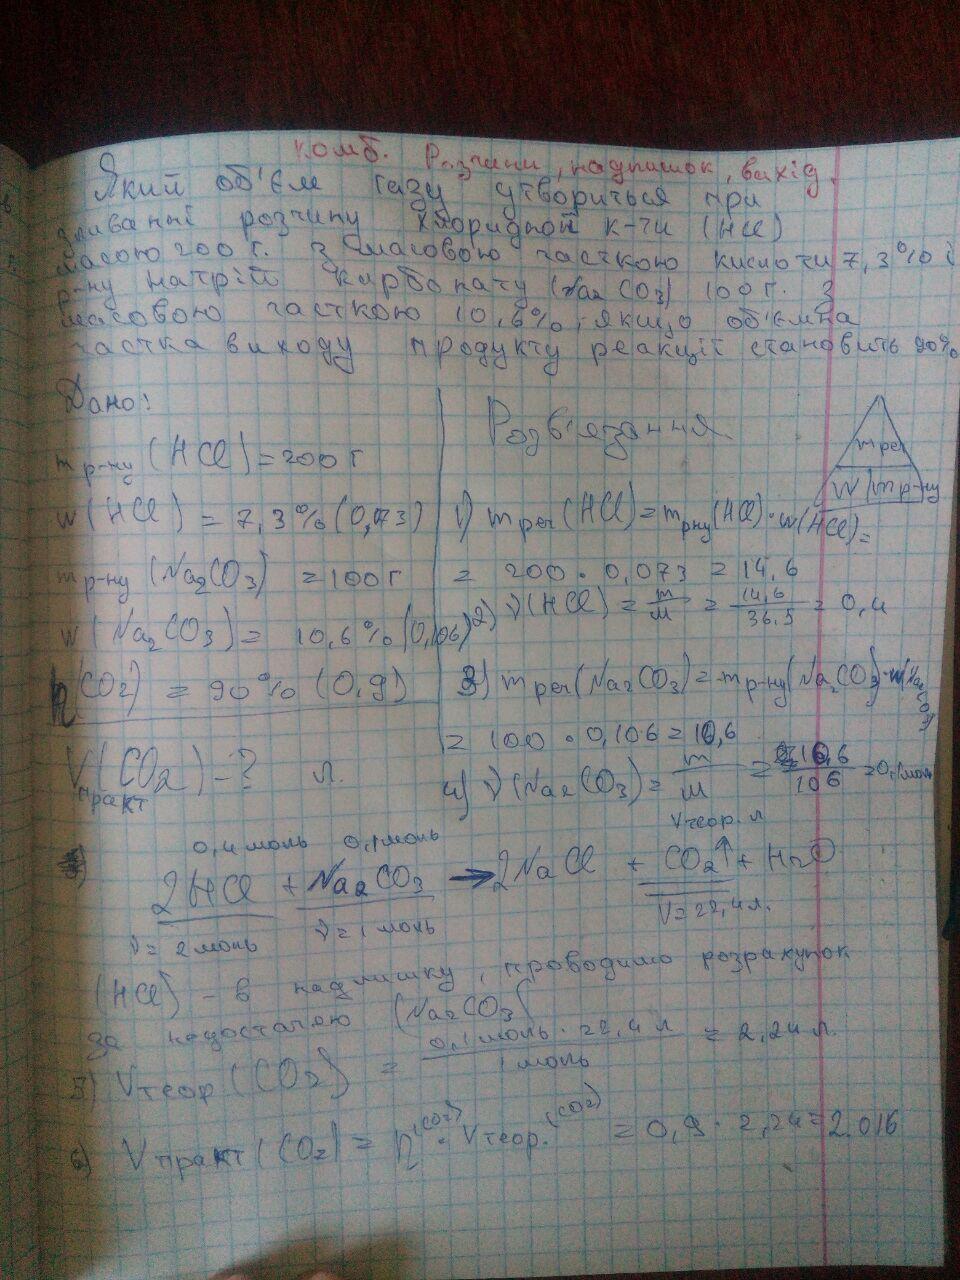 комб. Розчини, надлишок, вихід.
Який об'єм газу утвориться при
зливанні розчину хлоридної к-ти (HCl)
масою 200 г. з масовою часткою кислоти 7,3% і
р-ну натрій карбонату (Na2CO3) 100 г. з
масовою часткою 10,6%, якщо об'ємна
частка виходу продукту реакції становить 90%
Дано:
Розв'язання
m реч
W | m р-ну
m р-ну (HCl) = 200 г
w (HCl) = 7,3% (0,073)
1) m реч (HCl) = m р-ну (HCl) · w(HCl) =
m р-ну (Na2CO3) = 100 г
= 200 · 0,073 = 14,6
w (Na2CO3) = 10,6% (0,106)
2) ν(HCl) = m/M = 14,6/36,5 = 0,4
η(CO2) = 90% (0,9)
3) m реч (Na2CO3) = m р-ну (Na2CO3) · w(Na2CO3)
= 100 · 0,106 = 10,6
V практ (CO2) - ? л.
4) ν (Na2CO3) = m/M = 10,6/106 = 0,1 моль
0,4 моль 0,1 моль V теор. л
2HCl + Na2CO3 → 2NaCl + CO2↑ + H2O
ν = 2 моль ν = 1 моль V = 22,4 л.
(HCl) - в надлишку, проводимо розрахунок
за недостачою (Na2CO3)
5) V теор (CO2) = 0,1 моль · 22,4 л / 1 моль = 2,24 л.
6) V практ (CO2) = η(CO2) · V теор. (CO2) = 0,9 · 2,24 = 2.016